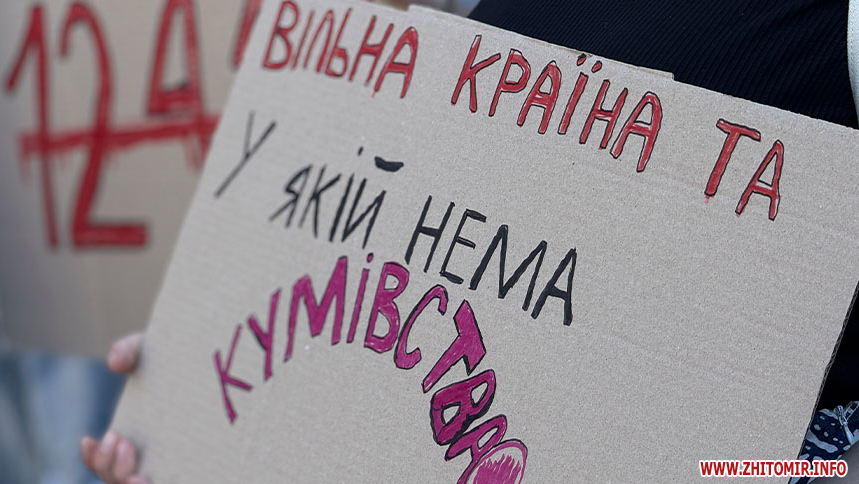 ВІЛЬНА КРАЇНА ТА
У ЯКІЙ НЕМА
КУМІВСТВА
WWW.ZHITOMIR.INFO